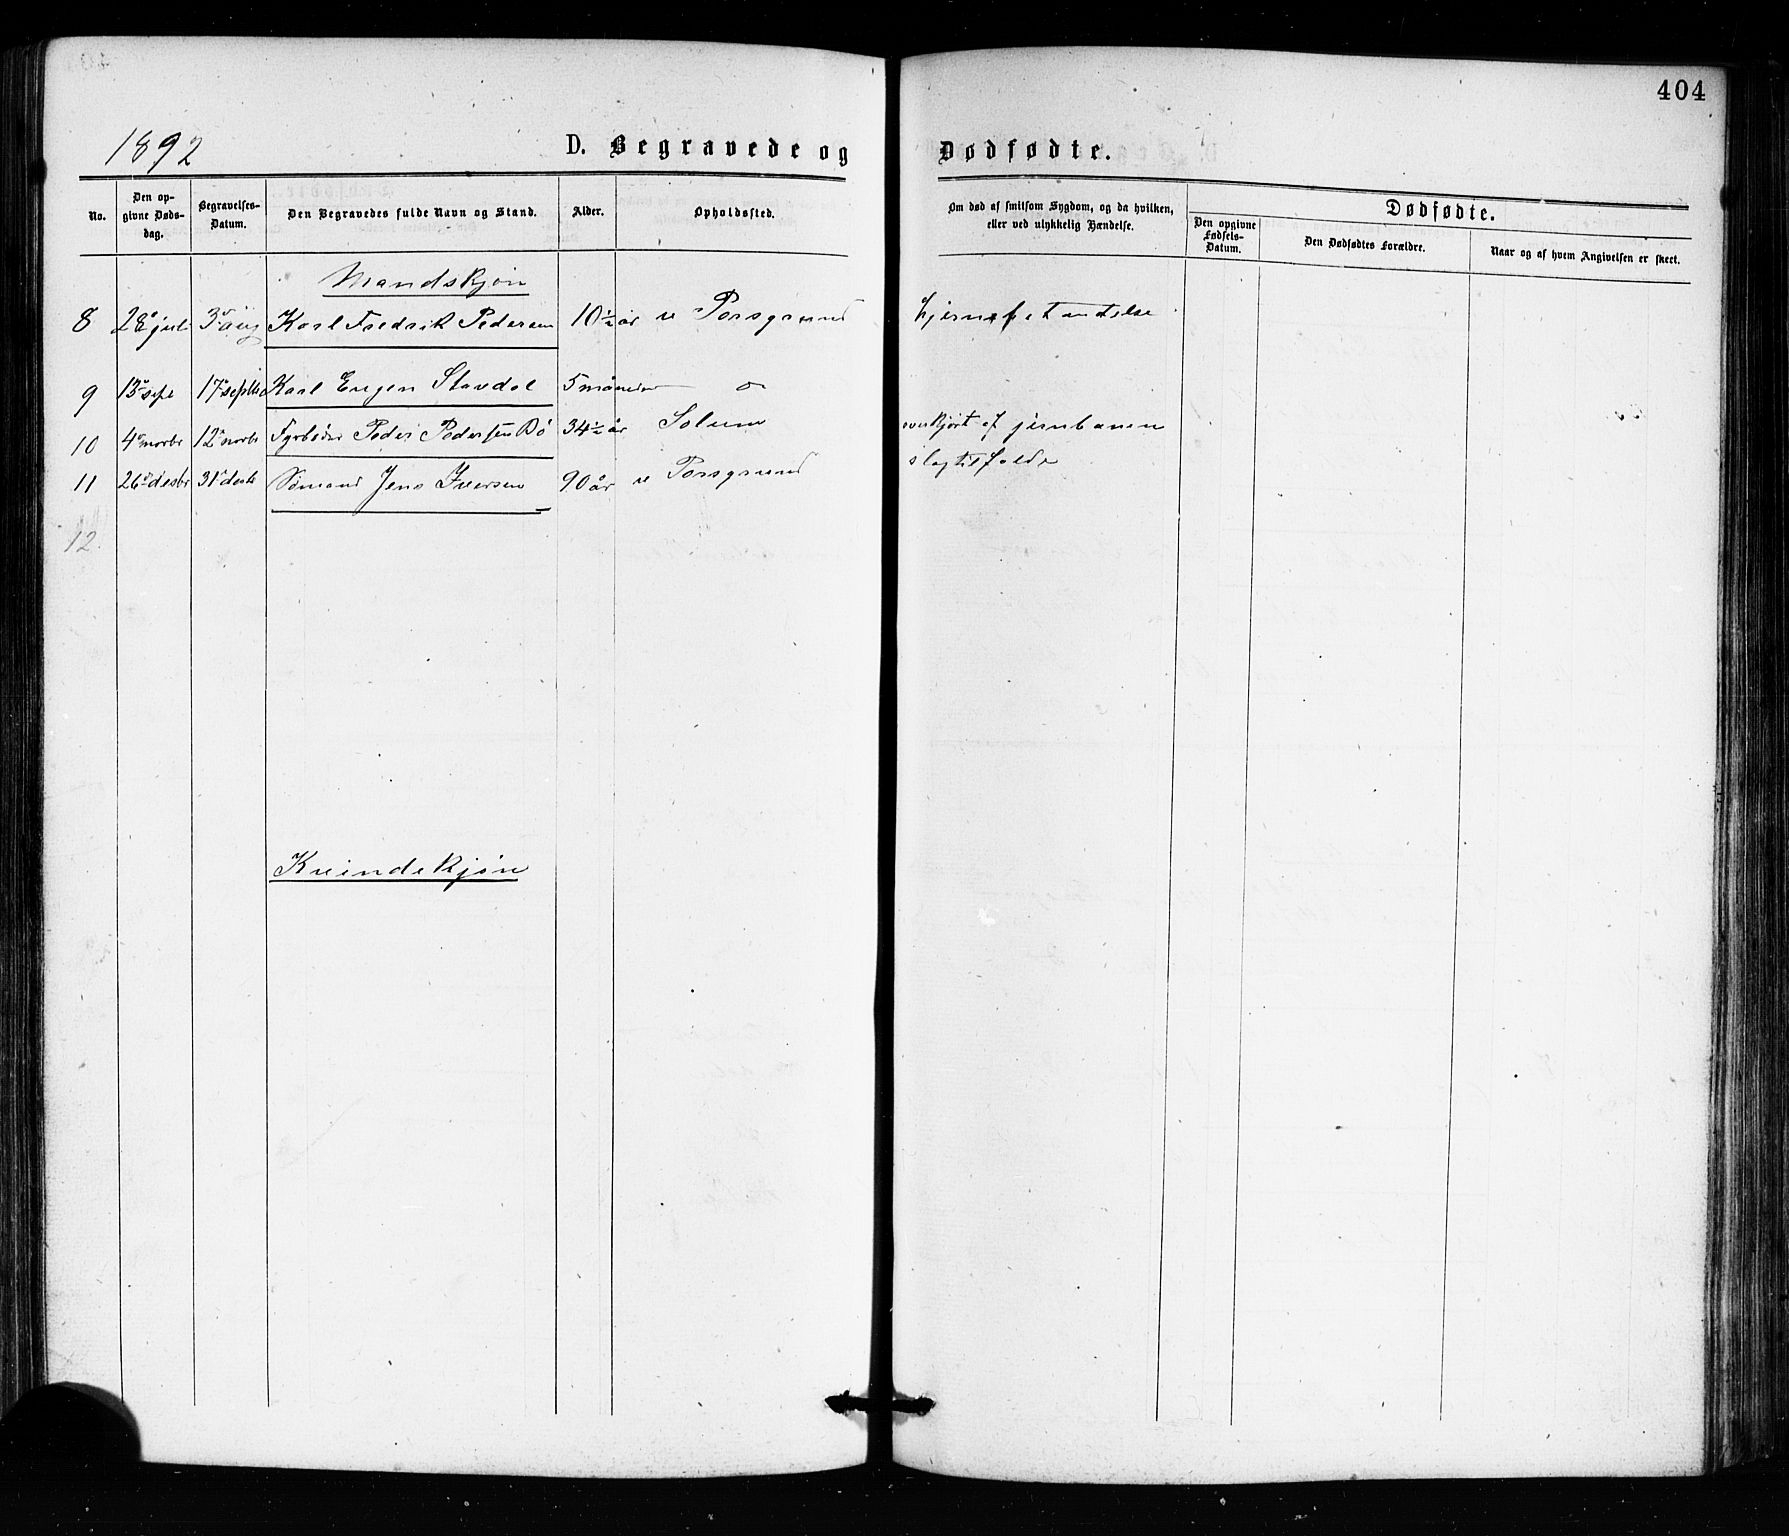 404
1892 D. Begravede og Dødfødte.
No. Den opgivne Dødsdag. Begravelses-Datum. Den Begravedes fulde Navn og Stand. Alder. Opholdssted. Om død af smitsom Sygdom, og da hvilken, eller ved ulykkelig Hændelse. Dødfødte.
Den opgivne Fødsels-Datum. Den Dødfødtes Forældre. Naar og af hvem Angivelsen er skeet.
Mandskjøn
8 28 juli 3 aug Karl Fredrik Pedersen 10 ½ år v Porsgrund hjernebetændelse
9 13 sept 17 septbr Karl Eugen Stavdal 5 måneder
10 4 novbr 12 novbr Fyrbøder Peder Pedersen Bö 34 ½ år Solum overkjørt af jernbanen
11 26 desbr 31 desbr Sømand Jens Iversen 90 år v Porsgrund slagtilfælde
12.
Kvindekjøn